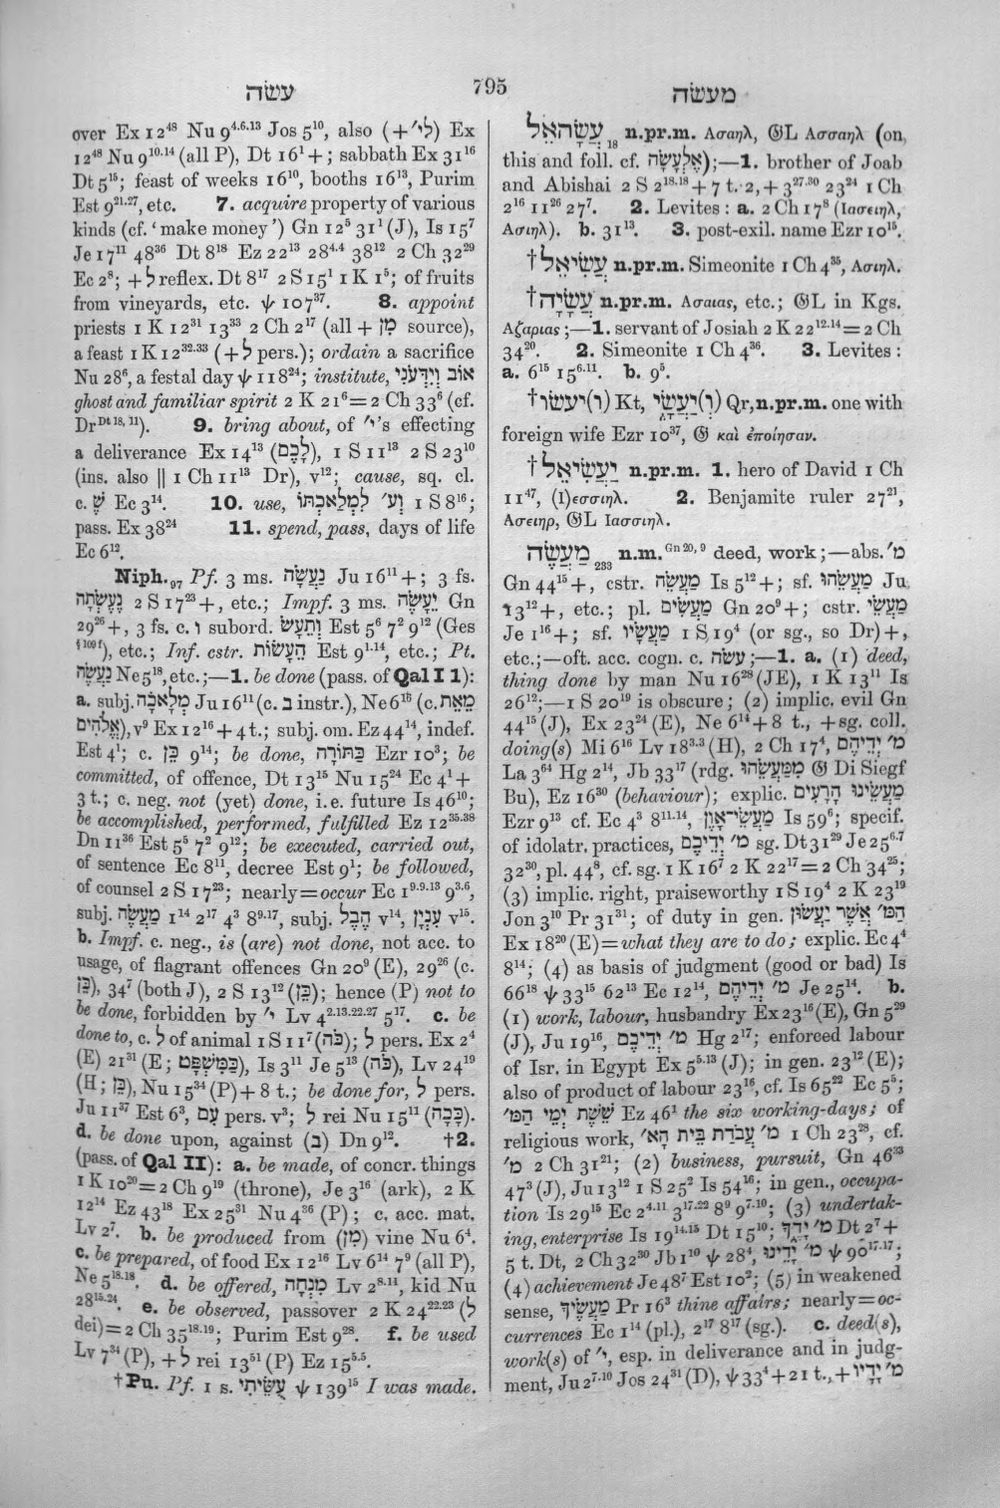 עשׂה
795
מעשׂה
over Ex 12⁴⁸ Nu 9⁴·⁶·¹³ Jos 5¹⁰, also (+ לי׳) Ex
12⁴⁸ Nu 9¹⁰·¹⁴ (all P), Dt 16¹ +; sabbath Ex 31¹⁶
Dt 5¹⁵; feast of weeks 16¹⁰, booths 16¹³, Purim
Est 9²¹·²⁷, etc. 7. acquire property of various
kinds (cf. ‘make money’) Gn 12⁵ 31¹ (J), Is 15⁷
Je 17¹¹ 48³⁶ Dt 8¹⁸ Ez 22¹³ 28⁴·⁴ 38¹² 2 Ch 32²⁹
Ec 2⁸; + ל reflex. Dt 8¹⁷ 2 S 15¹ 1 K 1⁵; of fruits
from vineyards, etc. ψ 107³⁷. 8. appoint
priests 1 K 12³¹ 13³³ 2 Ch 2¹⁷ (all + מִן source),
a feast 1 K 12³²·³³ (+ ל pers.); ordain a sacrifice
Nu 28⁶, a festal day ψ 118²⁴; institute, אוֹב וְיִדְּעֹנִי
ghost and familiar spirit 2 K 21⁶ = 2 Ch 33⁶ (cf.
Dr Dt 18, 11). 9. bring about, of י׳’s effecting
a deliverance Ex 14¹³ (לָכֶם), 1 S 11¹³ 2 S 23¹⁰
(ins. also || 1 Ch 11¹³ Dr), v¹²; cause, sq. cl.
c. שֶׁ Ec 3¹⁴. 10. use, וְע׳ לִמְלַאכְתּוֹ 1 S 8¹⁶;
pass. Ex 38²⁴ 11. spend, pass, days of life
Ec 6¹².
Niph.₉₇ Pf. 3 ms. נַעֲשָׂה Ju 16¹¹ +; 3 fs.
נֶעֶשְׂתָה 2 S 17²³ +, etc.; Impf. 3 ms. יֵעָשֶׂה Gn
29²⁶ +, 3 fs. c. ו subord. וְתֵעָשׂ Est 5⁶ 7² 9¹² (Ges
§ 109 f), etc.; Inf. cstr. הֵעָשׂוֹת Est 9¹·¹⁴, etc.; Pt.
נַעֲשֶׂה Ne 5¹⁸, etc.;—1. be done (pass. of Qal I 1):
a. subj. מְלָאכָה Ju 16¹¹ (c. ב instr.), Ne 6¹⁶ (c. מֵאֵת
אֱלֹהִים), v⁹ Ex 12¹⁶ + 4 t.; subj. om. Ez 44¹⁴, indef.
Est 4¹; c. כֵּן 9¹⁴; be done, כַּתּוֹרָה Ezr 10³; be
committed, of offence, Dt 13¹⁵ Nu 15²⁴ Ec 4¹ +
3 t.; c. neg. not (yet) done, i.e. future Is 46¹⁰;
be accomplished, performed, fulfilled Ez 12²⁵·²⁸
Dn 11³⁶ Est 5⁶ 7² 9¹²; be executed, carried out,
of sentence Ec 8¹¹, decree Est 9¹; be followed,
of counsel 2 S 17²³; nearly = occur Ec 1⁹·⁹·¹³ 9³·⁶,
subj. מַעֲשֶׂה 1¹⁴ 2¹⁷ 4³ 8⁹·¹⁷, subj. הֶבֶל v¹⁴, עִנְיָן v¹⁵.
b. Impf. c. neg., is (are) not done, not acc. to
usage, of flagrant offences Gn 20⁹ (E), 29²⁶ (c.
כֵּן), 34⁷ (both J), 2 S 13¹² (כֵּן); hence (P) not to
be done, forbidden by י׳ Lv 4²·¹³·²²·²⁷ 5¹⁷. c. be
done to, c. ל of animal 1 S 11⁷ (כֹּה); ל pers. Ex 2⁴
(E) 21³¹ (E; כַּמִּשְׁפָּט), Is 3¹¹ Je 5¹³ (כֹּה), Lv 24¹⁹
(H; כֵּן), Nu 15³⁴ (P) + 8 t.; be done for, ל pers.
Ju 11³⁷ Est 6³, עִם pers. v³; ל rei Nu 15¹¹ (כָּכָה).
d. be done upon, against (ב) Dn 9¹². †2.
(pass. of Qal II): a. be made, of concr. things
1 K 10²⁰ = 2 Ch 9¹⁹ (throne), Je 3¹⁶ (ark), 2 K
12¹⁴ Ez 43¹⁸ Ex 25³¹ Nu 4²⁶ (P); c. acc. mat.
Lv 2⁷. b. be produced from (מִן) vine Nu 6⁴.
c. be prepared, of food Ex 12¹⁶ Lv 6¹⁴ 7⁹ (all P),
Ne 5¹⁸·¹⁸. d. be offered, מִנְחָה Lv 2⁸·¹¹, kid Nu
28¹⁵·²⁴. e. be observed, passover 2 K 24²²·²³ (ל
dei) = 2 Ch 35¹⁸·¹⁹; Purim Est 9²⁸. f. be used
Lv 7²⁴ (P), + ל rei 13⁵¹ (P) Ez 15⁵·⁵.
†Pu. Pf. 1 s. עֻשֵּׂיתִי ψ 139¹⁵ I was made.
עֲשָׂהאֵל₁₈ n.pr.m. Ασαηλ, 𝔊L Ασσαηλ (on
this and foll. cf. אֶלְעָשָׂה);—1. brother of Joab
and Abishai 2 S 2¹⁸·¹⁸ + 7 t. 2, + 3²⁷·³⁰ 23²⁴ 1 Ch
2¹⁶ 11²⁶ 27⁷. 2. Levites: a. 2 Ch 17⁸ (Ιασειηλ,
Ασιηλ). b. 31¹³. 3. post-exil. name Ezr 10¹⁵.
†עֲשִׂיאֵל n.pr.m. Simeonite 1 Ch 4³⁵, Ασιηλ.
†עֲשָׂיָה n.pr.m. Ασαιας, etc.; 𝔊L in Kgs.
Αζαριας;—1. servant of Josiah 2 K 22¹²·¹⁴ = 2 Ch
34²⁰. 2. Simeonite 1 Ch 4³⁶. 3. Levites:
a. 6¹⁵ 15⁶·¹¹. b. 9⁵.
†(ו)יעשׂו Kt, (וְ)יַעֲשָׂי Qr, n.pr.m. one with
foreign wife Ezr 10³⁷, 𝔊 καὶ ἐποίησαν.
†יַעֲשִׂיאֵל n.pr.m. 1. hero of David 1 Ch
11⁴⁷, (Ι)εσσιηλ. 2. Benjamite ruler 27²¹,
Ασειηρ, 𝔊L Ιασσιηλ.
מַעֲשֶׂה₂₃₃ n.m. Gn 20, 9 deed, work;—abs. מ׳
Gn 44¹⁵ +, cstr. מַעֲשֵׂה Is 5¹² +; sf. מַעֲשֵׂהוּ Ju
13¹² +, etc.; pl. מַעֲשִׂים Gn 20⁹ +; cstr. מַעֲשֵׂי
Je 1¹⁶ +; sf. מַעֲשָׂיו 1 S 19⁴ (or sg., so Dr) +,
etc.;—oft. acc. cogn. c. עשׂה;—1. a. (1) deed,
thing done by man Nu 16²⁸ (JE), 1 K 13¹¹ Is
26¹²;—1 S 20¹⁹ is obscure; (2) implic. evil Gn
44¹⁵ (J), Ex 23²⁴ (E), Ne 6¹⁴ + 8 t., + sg. coll.
doing(s) Mi 6¹⁶ Lv 18³·³ (H), 2 Ch 17⁴, מ׳ יְדֵיהֶם
La 3⁶⁴ Hg 2¹⁴, Jb 33¹⁷ (rdg. מִמַּעֲשֵׂהוּ 𝔊 Di Siegf
Bu), Ez 16³⁰ (behaviour); explic. מַעֲשֵׂינוּ הָרָעִים
Ezr 9¹³ cf. Ec 4³ 8¹¹·¹⁴, מַעֲשֵׂי־אָוֶן Is 59⁶; specif.
of idolatr. practices, מ׳ יְדֵיכֶם sg. Dt 31²⁹ Je 25⁶·⁷
32³⁰, pl. 44⁸, cf. sg. 1 K 16⁷ 2 K 22¹⁷ = 2 Ch 34²⁵;
(3) implic. right, praiseworthy 1 S 19⁴ 2 K 23¹⁹
Jon 3¹⁰ Pr 31³¹; of duty in gen. הַמּ׳ אֲשֶׁר יַעֲשׂוּן
Ex 18²⁰ (E) = what they are to do; explic. Ec 4⁴
8¹⁴; (4) as basis of judgment (good or bad) Is
66¹⁸ ψ 33¹⁵ 62¹³ Ec 12¹⁴, מ׳ יְדֵיהֶם Je 25¹⁴. b.
(1) work, labour, husbandry Ex 23¹⁶ (E), Gn 5²⁹
(J), Ju 19¹⁶, מ׳ יְדֵיכֶם Hg 2¹⁷; enforced labour
of Isr. in Egypt Ex 5⁵·¹³ (J); in gen. 23¹² (E);
also of product of labour 23¹⁶, cf. Is 65²² Ec 5⁵;
שֵׁשֶׁת יְמֵי הַמּ׳ Ez 46¹ the six working-days; of
religious work, מ׳ עֲבֹדַת בֵּית הָא׳ 1 Ch 23²⁸, cf.
מ׳ 2 Ch 31²¹; (2) business, pursuit, Gn 46³³
47³ (J), Ju 13¹² 1 S 25² Is 54¹⁶; in gen., occupa-
tion Is 29¹⁵ Ec 2⁴·¹¹ 3¹⁷·²² 8⁹ 9⁷·¹⁰; (3) undertak-
ing, enterprise Is 19¹⁴·¹⁵ Dt 15¹⁰; מ׳ יָדֶךָ Dt 2⁷ +
5 t. Dt, 2 Ch 32³⁰ Jb 1¹⁰ ψ 28⁴, מ׳ יָדֵינוּ ψ 90¹⁷·¹⁷;
(4) achievement Je 48⁷ Est 10²; (5) in weakened
sense, מַעֲשֶׂיךָ Pr 16³ thine affairs; nearly = oc-
currences Ec 1¹⁴ (pl.), 2¹⁷ 8¹⁷ (sg.). c. deed(s),
work(s) of י׳, esp. in deliverance and in judg-
ment, Ju 2⁷·¹⁰ Jos 24³¹ (D), ψ 33⁴ + 21 t., + מ׳ יָדָיו